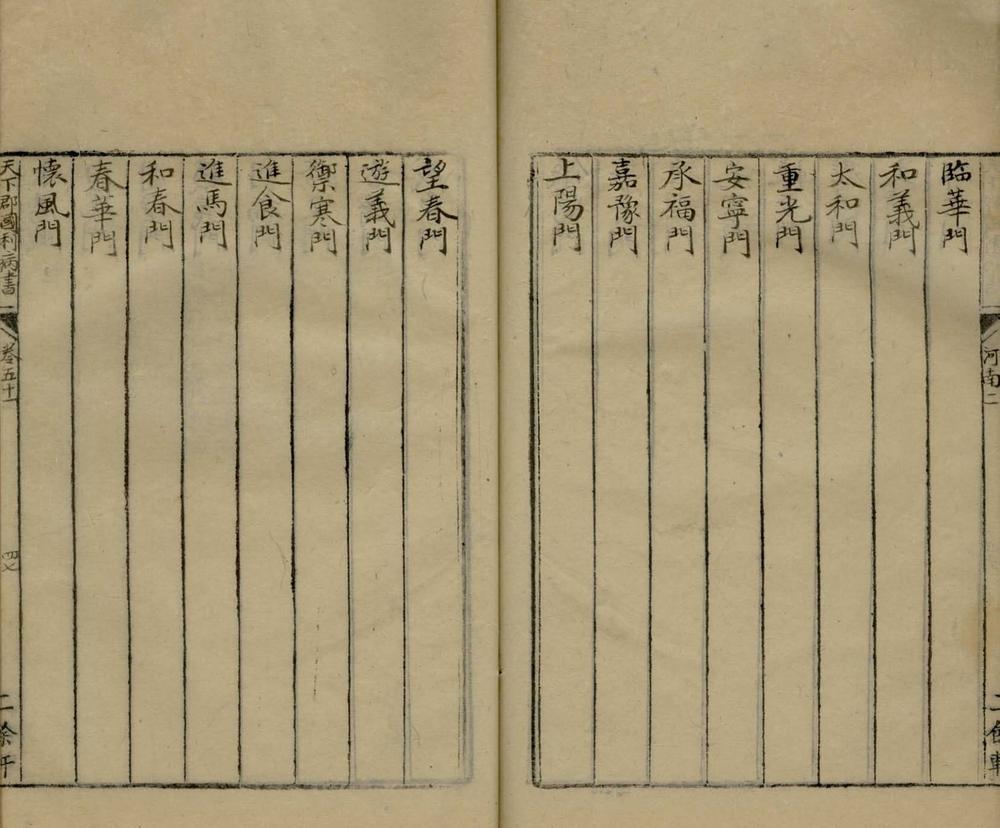 河南二
臨華門
和義門
太和門
重光門
安寧門
承福門
嘉豫門
上陽門
望春門
遊義門
禦寒門
進食門
進馬門
和春門
春華門
懷風門
天下郡國利病書
卷五十一
四七
二餘軒